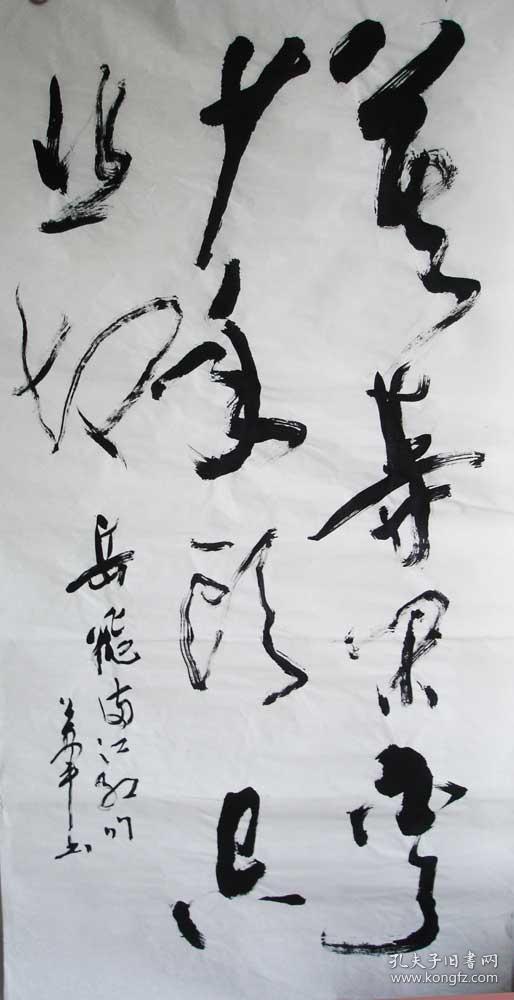 莫等闲白了
少年头空
悲切
岳飛满江红
孔夫子旧书网
www.kongfz.com